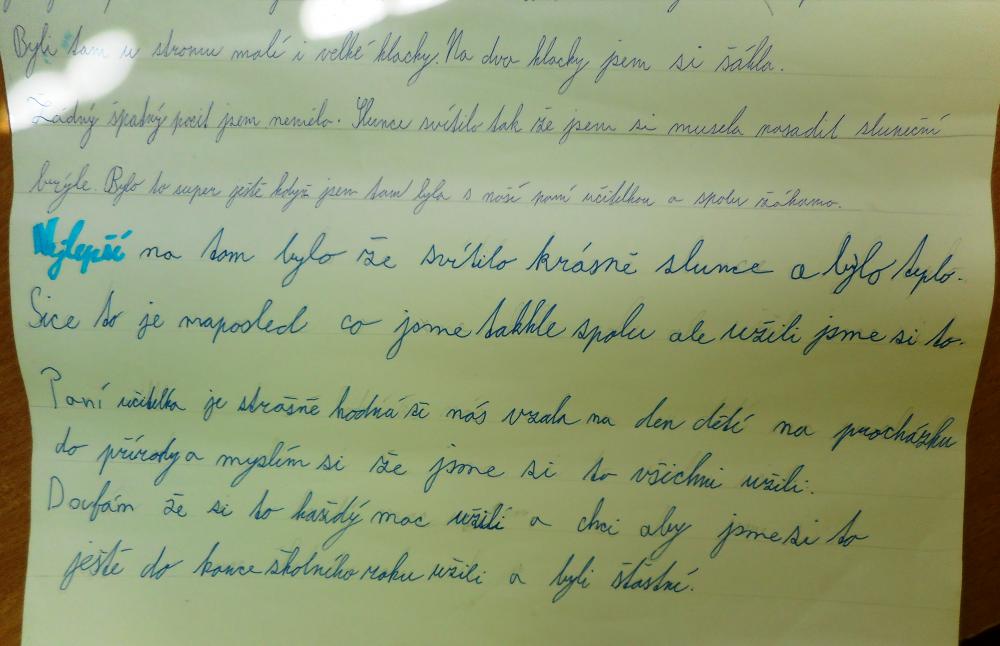 Byli tam u stromu malí i velké klacky. Na dva klacky jsem si sáhla.
Žádný špatný pocit jsem neměla. Slunce svítilo tak že jsem si musela nasadit sluneční
brýle. Bylo to super ještě když jsem tam byla s naší paní učitelkou a spolu žákama.
Nejlepší na tom bylo že svítilo krásně slunce a bylo teplo.
Sice to je naposled co jsme takhle spolu ale užili jsme si to.
Paní učitelka je strašně hodná že nás vzala na den dětí na procházku
do přírody a myslím si že jsme si to všichni užili.
Doufám že si to každý moc užili a chci aby jsme si to
ještě do konce školního roku užili a byli šťastní.